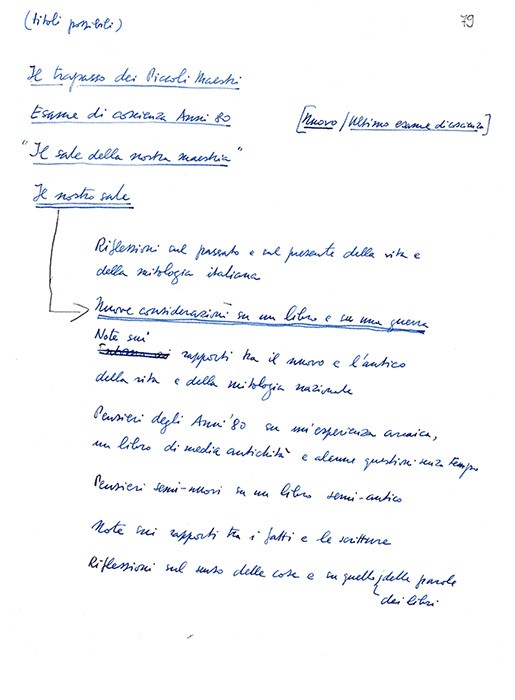 (titoli possibili)
79
Il trapasso dei Piccoli Maestri
Esame di coscienza Anni 80
[Nuovo / Ultimo esame di coscienza]
"Il sale della nostra maestria"
Il nostro sale
Riflessioni sul passato e sul presente della vita e
della mitologia italiana
Nuove considerazioni su un libro e su una guerra
Note sui
rapporti tra il nuovo e l'antico
della vita e della mitologia nazionale
Pensieri degli Anni '80 su un'esperienza arcaica,
un libro di media antichità e alcune questioni senza tempo
Pensieri semi-nuovi su un libro semi-antico
Note sui rapporti tra i fatti e le scritture
Riflessioni sul senso delle cose e su quello delle parole
dei libri